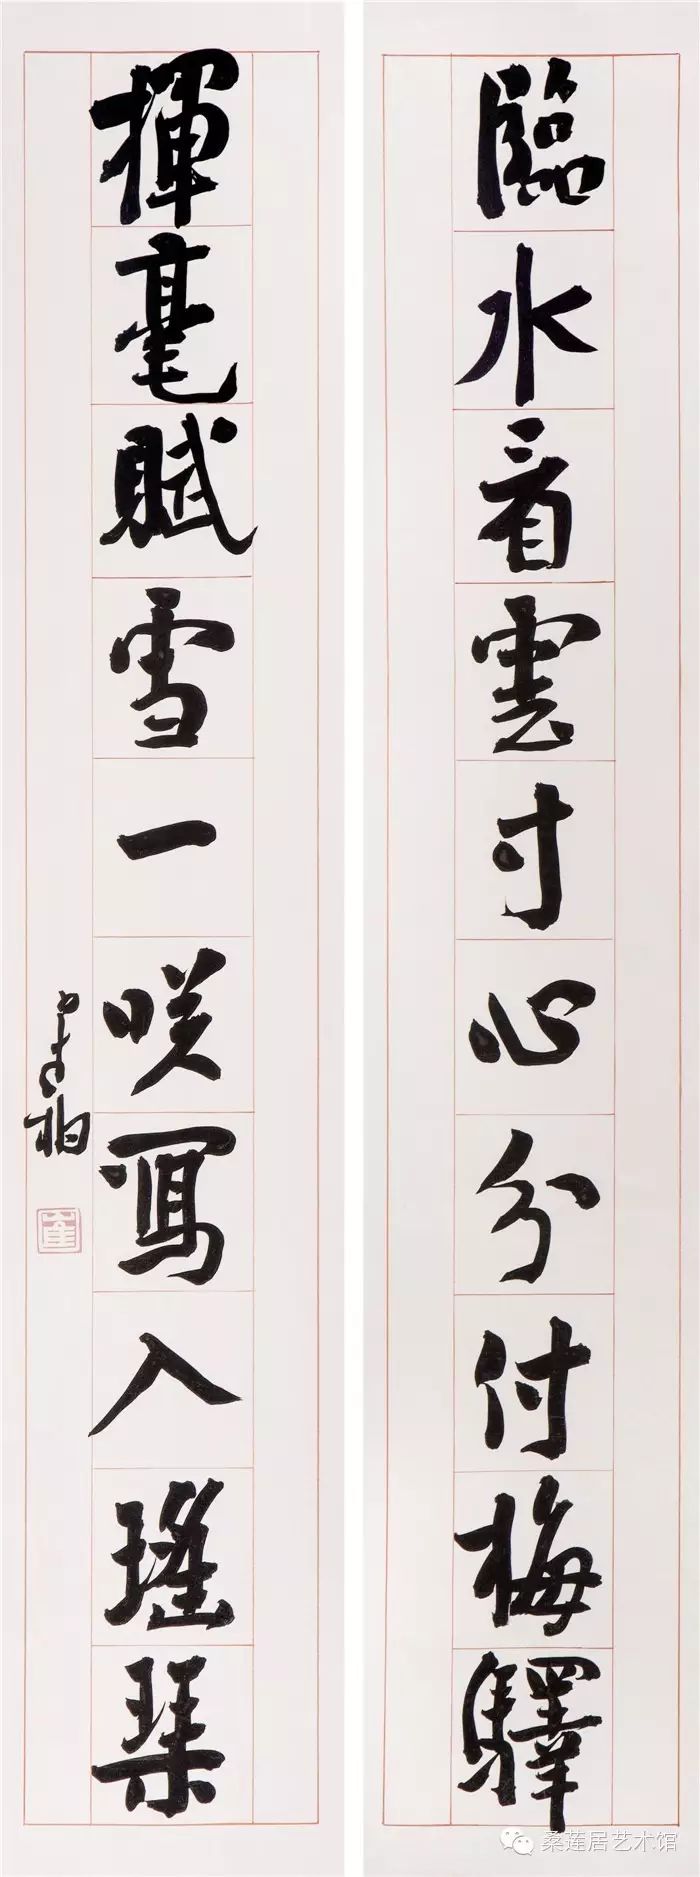 臨水看雲寸心分付梅驛
揮毫賦雪一咲寫入瑤琹
桑莲居艺术馆